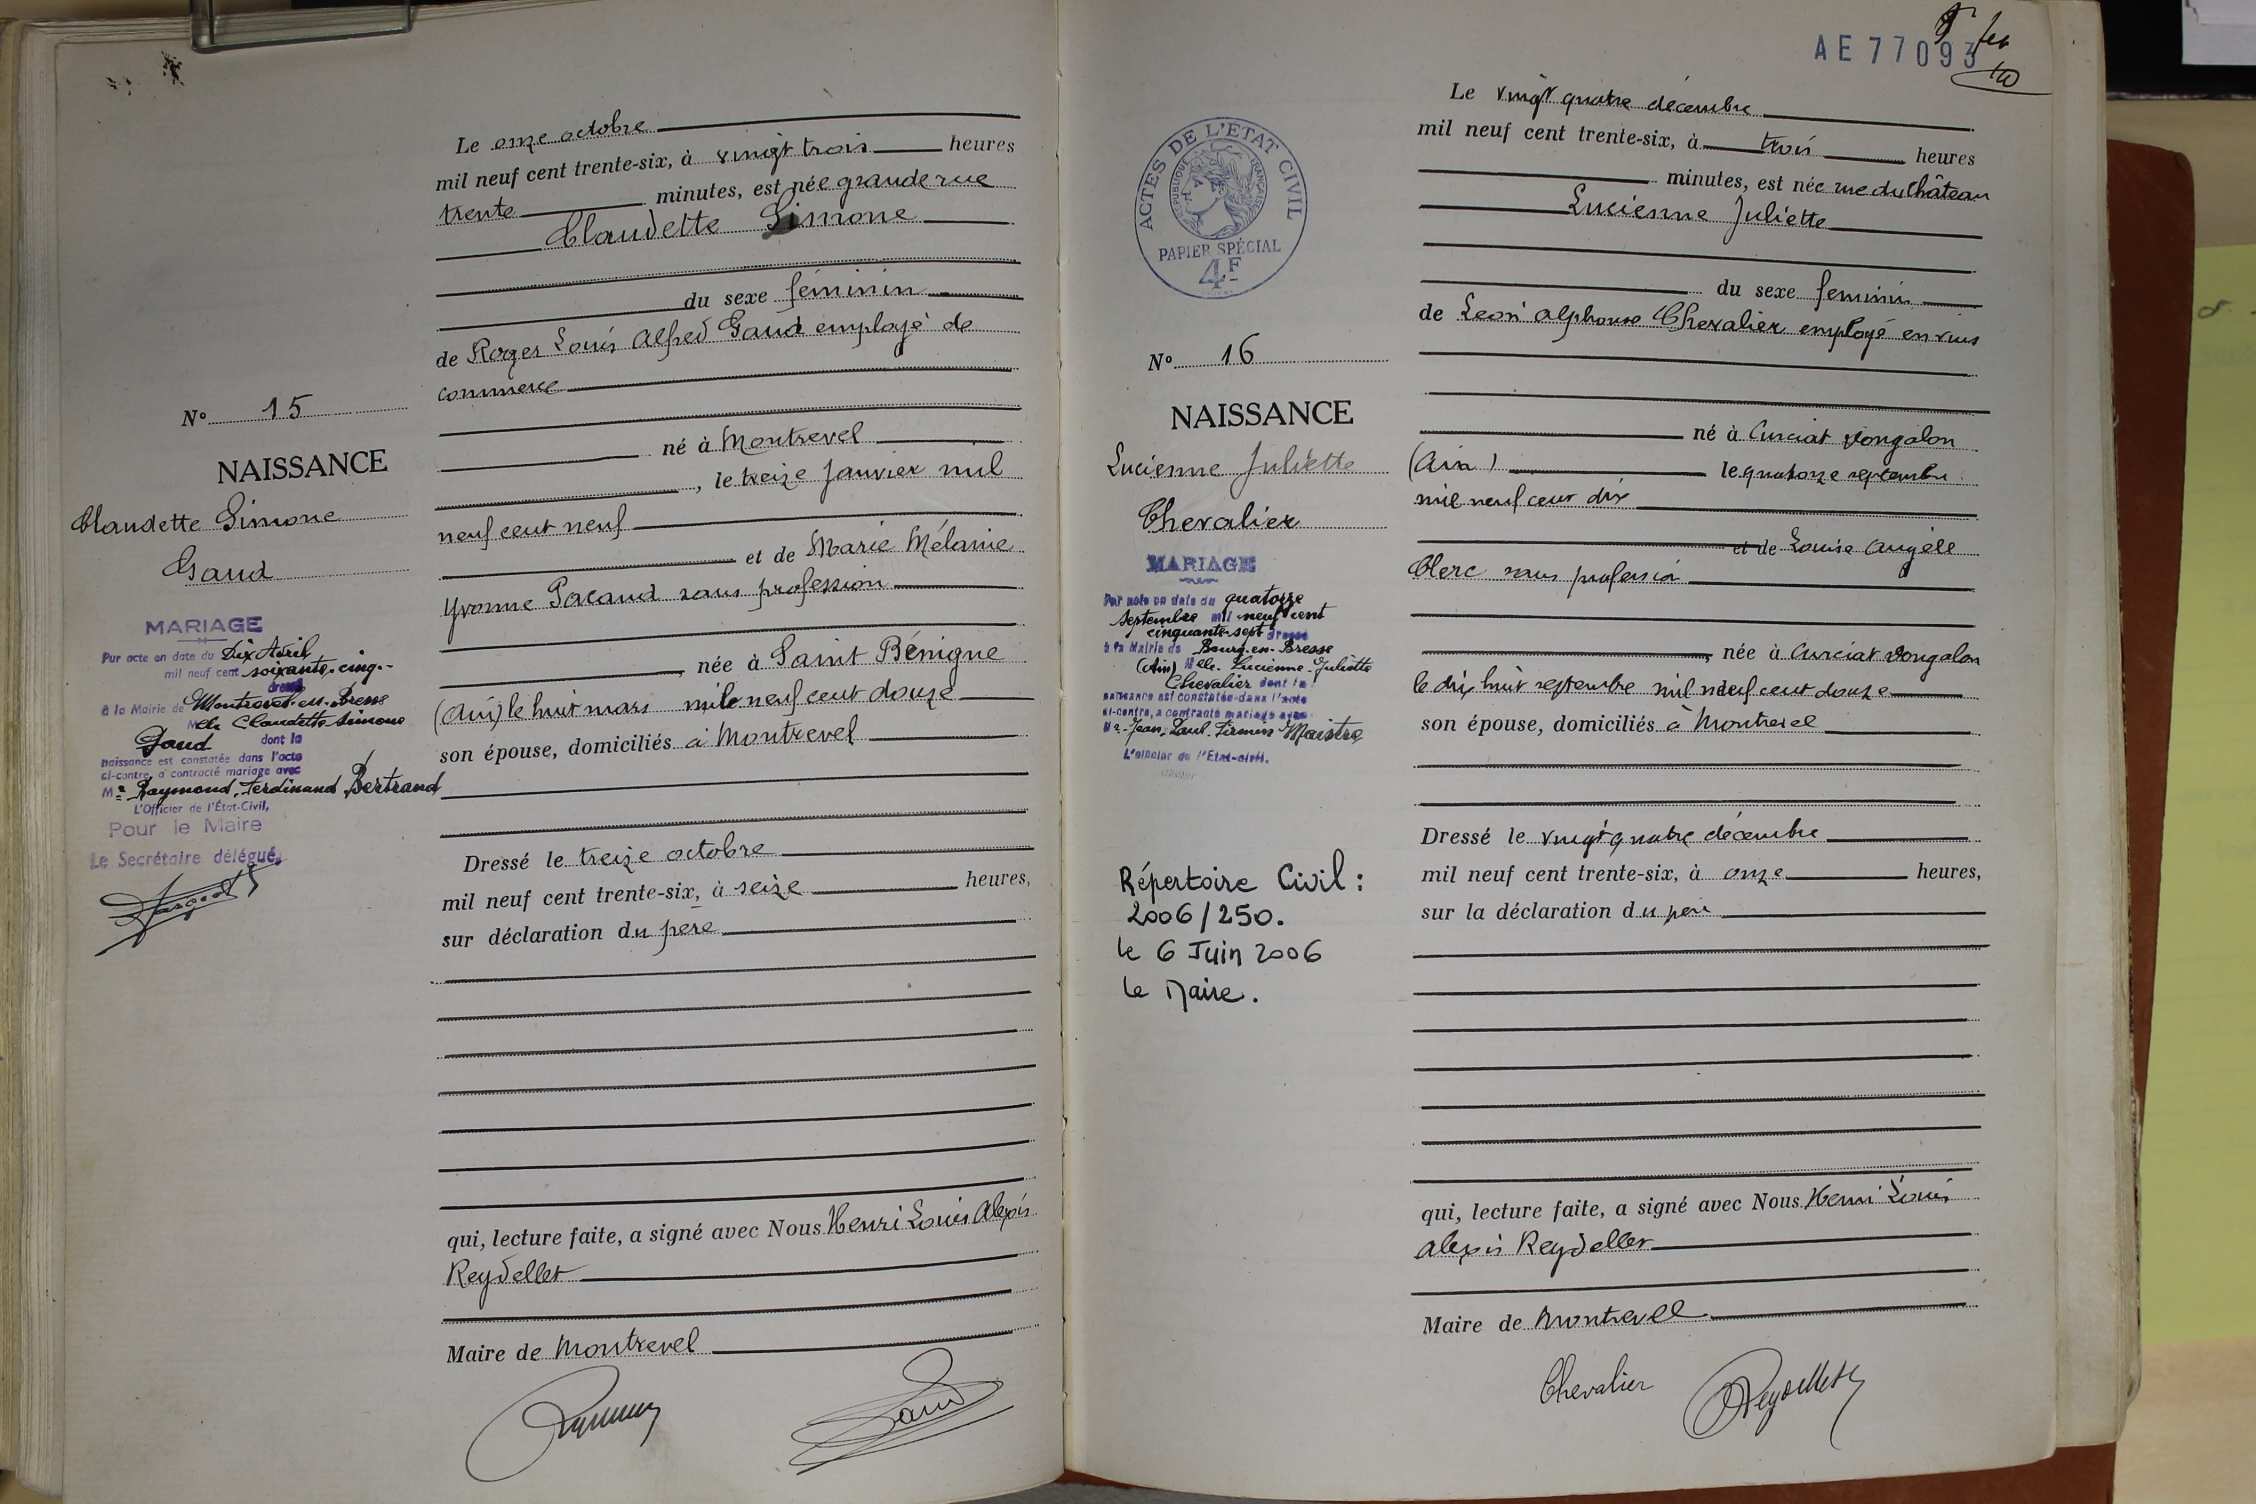 Le onze octobre
mil neuf cent trente-six, à vingt trois heures
trente minutes, est née grande rue
Claudette Simone
du sexe féminin
de Roger Louis Alfred Gaud employé de
commerce
né à Montrevel
, le treize Janvier mil
neuf cent neuf
et de Marie Mélanie
Yvonne Pacaud sans profession
, née à Saint Bénigne
(Ain) le huit mars mil neuf cent douze
son épouse, domiciliés à Montrevel
Dressé le treize octobre
mil neuf cent trente-six, à seize heures,
sur déclaration du père
qui, lecture faite, a signé avec Nous Henri Louis Alexis
Reydellet
Maire de Montrevel
Gaud
No 15
NAISSANCE
Claudette Simone
Gaud
MARIAGE
Par acte en date du Dix Avril
mil neuf cent soixante-cinq
dressé
à la Mairie de Montrevel-en-Bresse
Melle Claudette Simone
Gaud dont la
naissance est constatée dans l'acte
ci-contre, a contracté mariage avec
Mr Raymond, Ferdinand Bertrand
L'Officier de l'État-Civil,
Pour le Maire
Le Secrétaire délégué,
AE 77093
ACTES DE L'ETAT CIVIL
REPUBLIQUE FRANÇAISE
PAPIER SPÉCIAL
4F
No 16
NAISSANCE
Lucienne Juliette
Chevalier
MARIAGE
Par acte en date du quatorze
septembre mil neuf cent
cinquante-sept dressé
à la Mairie de Bourg-en-Bresse
(Ain) Melle Lucienne-Juliette
Chevalier dont la
naissance est constatée dans l'acte
ci-contre, a contracté mariage avec
Mr Jean, Paul, Firmin Maistre
L'officier de l'Etat-civil.
Répertoire Civil :
2006/250.
le 6 Juin 2006
Le Maire.
Le vingt quatre décembre
mil neuf cent trente-six, à trois heures
minutes, est née rue du Château
Lucienne Juliette
du sexe féminin
de Léon Alphonse Chevalier employé en vins
né à Curciat Dongalon
(Ain) le quatorze septembre
mil neuf cent dix
et de Louise Angèle
Clerc sans profession
, née à Curciat Dongalon
le dix huit septembre mil neuf cent douze
son épouse, domiciliés à Montrevel
Dressé le vingt quatre décembre
mil neuf cent trente-six, à onze heures,
sur la déclaration du père
qui, lecture faite, a signé avec Nous Henri Louis
Alexis Reydellet
Maire de Montrevel
Chevalier Reydellet